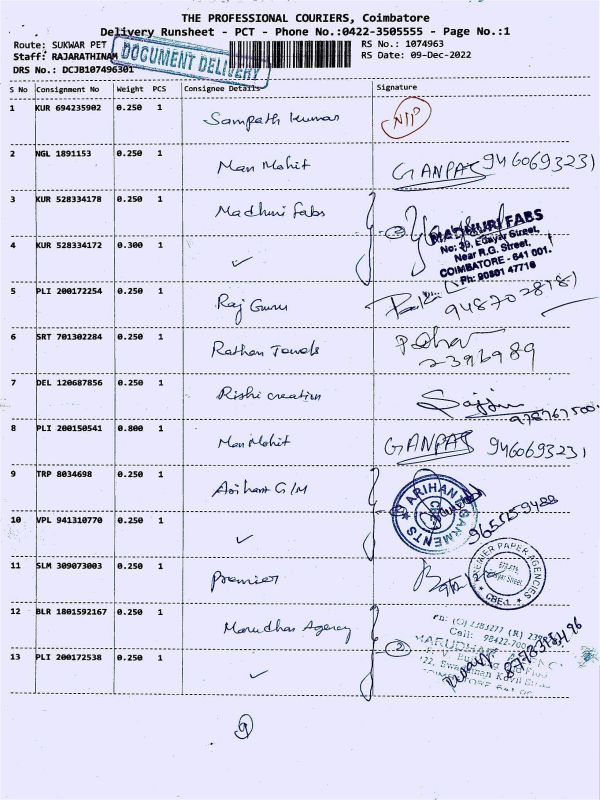 THE PROFESSIONAL COURIERS, Coimbatore
Delivery Runsheet - PCT - Phone No.:0422-3505555 - Page No.:1
Route: SUKWAR PET RS No.: 1074963
Staff: RAJARATHINAM DOCUMENT DELIVERY RS Date: 09-Dec-2022
DRS No.: DCJB107496301
S No Consignment No Weight PCS Consignee Details Signature
1 KUR 694235902 0.250 1 Sampath Kumar
2 NGL 1891153 0.250 1 Man Mohit GANPAT 9460693231
3 KUR 528334178 0.250 1 Madhuri Fabs 2
MADHURI FABS
No: 39, Edayar Street,
Near R.G. Street,
COIMBATORE - 641 001.
Ph: 90801 47718
4 KUR 528334172 0.300 1 ✓
5 PLI 200172254 0.250 1 Raj Guru
6 SRT 701302284 0.250 1 Rathan Towels 2396989
7 DEL 120687856 0.250 1 Rishi creation
8 PLI 200150541 0.800 1 Man Mohit GANPAT 9460693231
9 TRP 8034698 0.250 1 Arihant G/M
ARIHANT GARMENTS
10 VPL 941310770 0.250 1 ✓
11 SLM 309073003 0.250 1 Premier
PREMIER PAPER AGENCIES
CBE-1
12 BLR 1801592167 0.250 1 Marudhar Agency 2
13 PLI 200172538 0.250 1 ✓
9